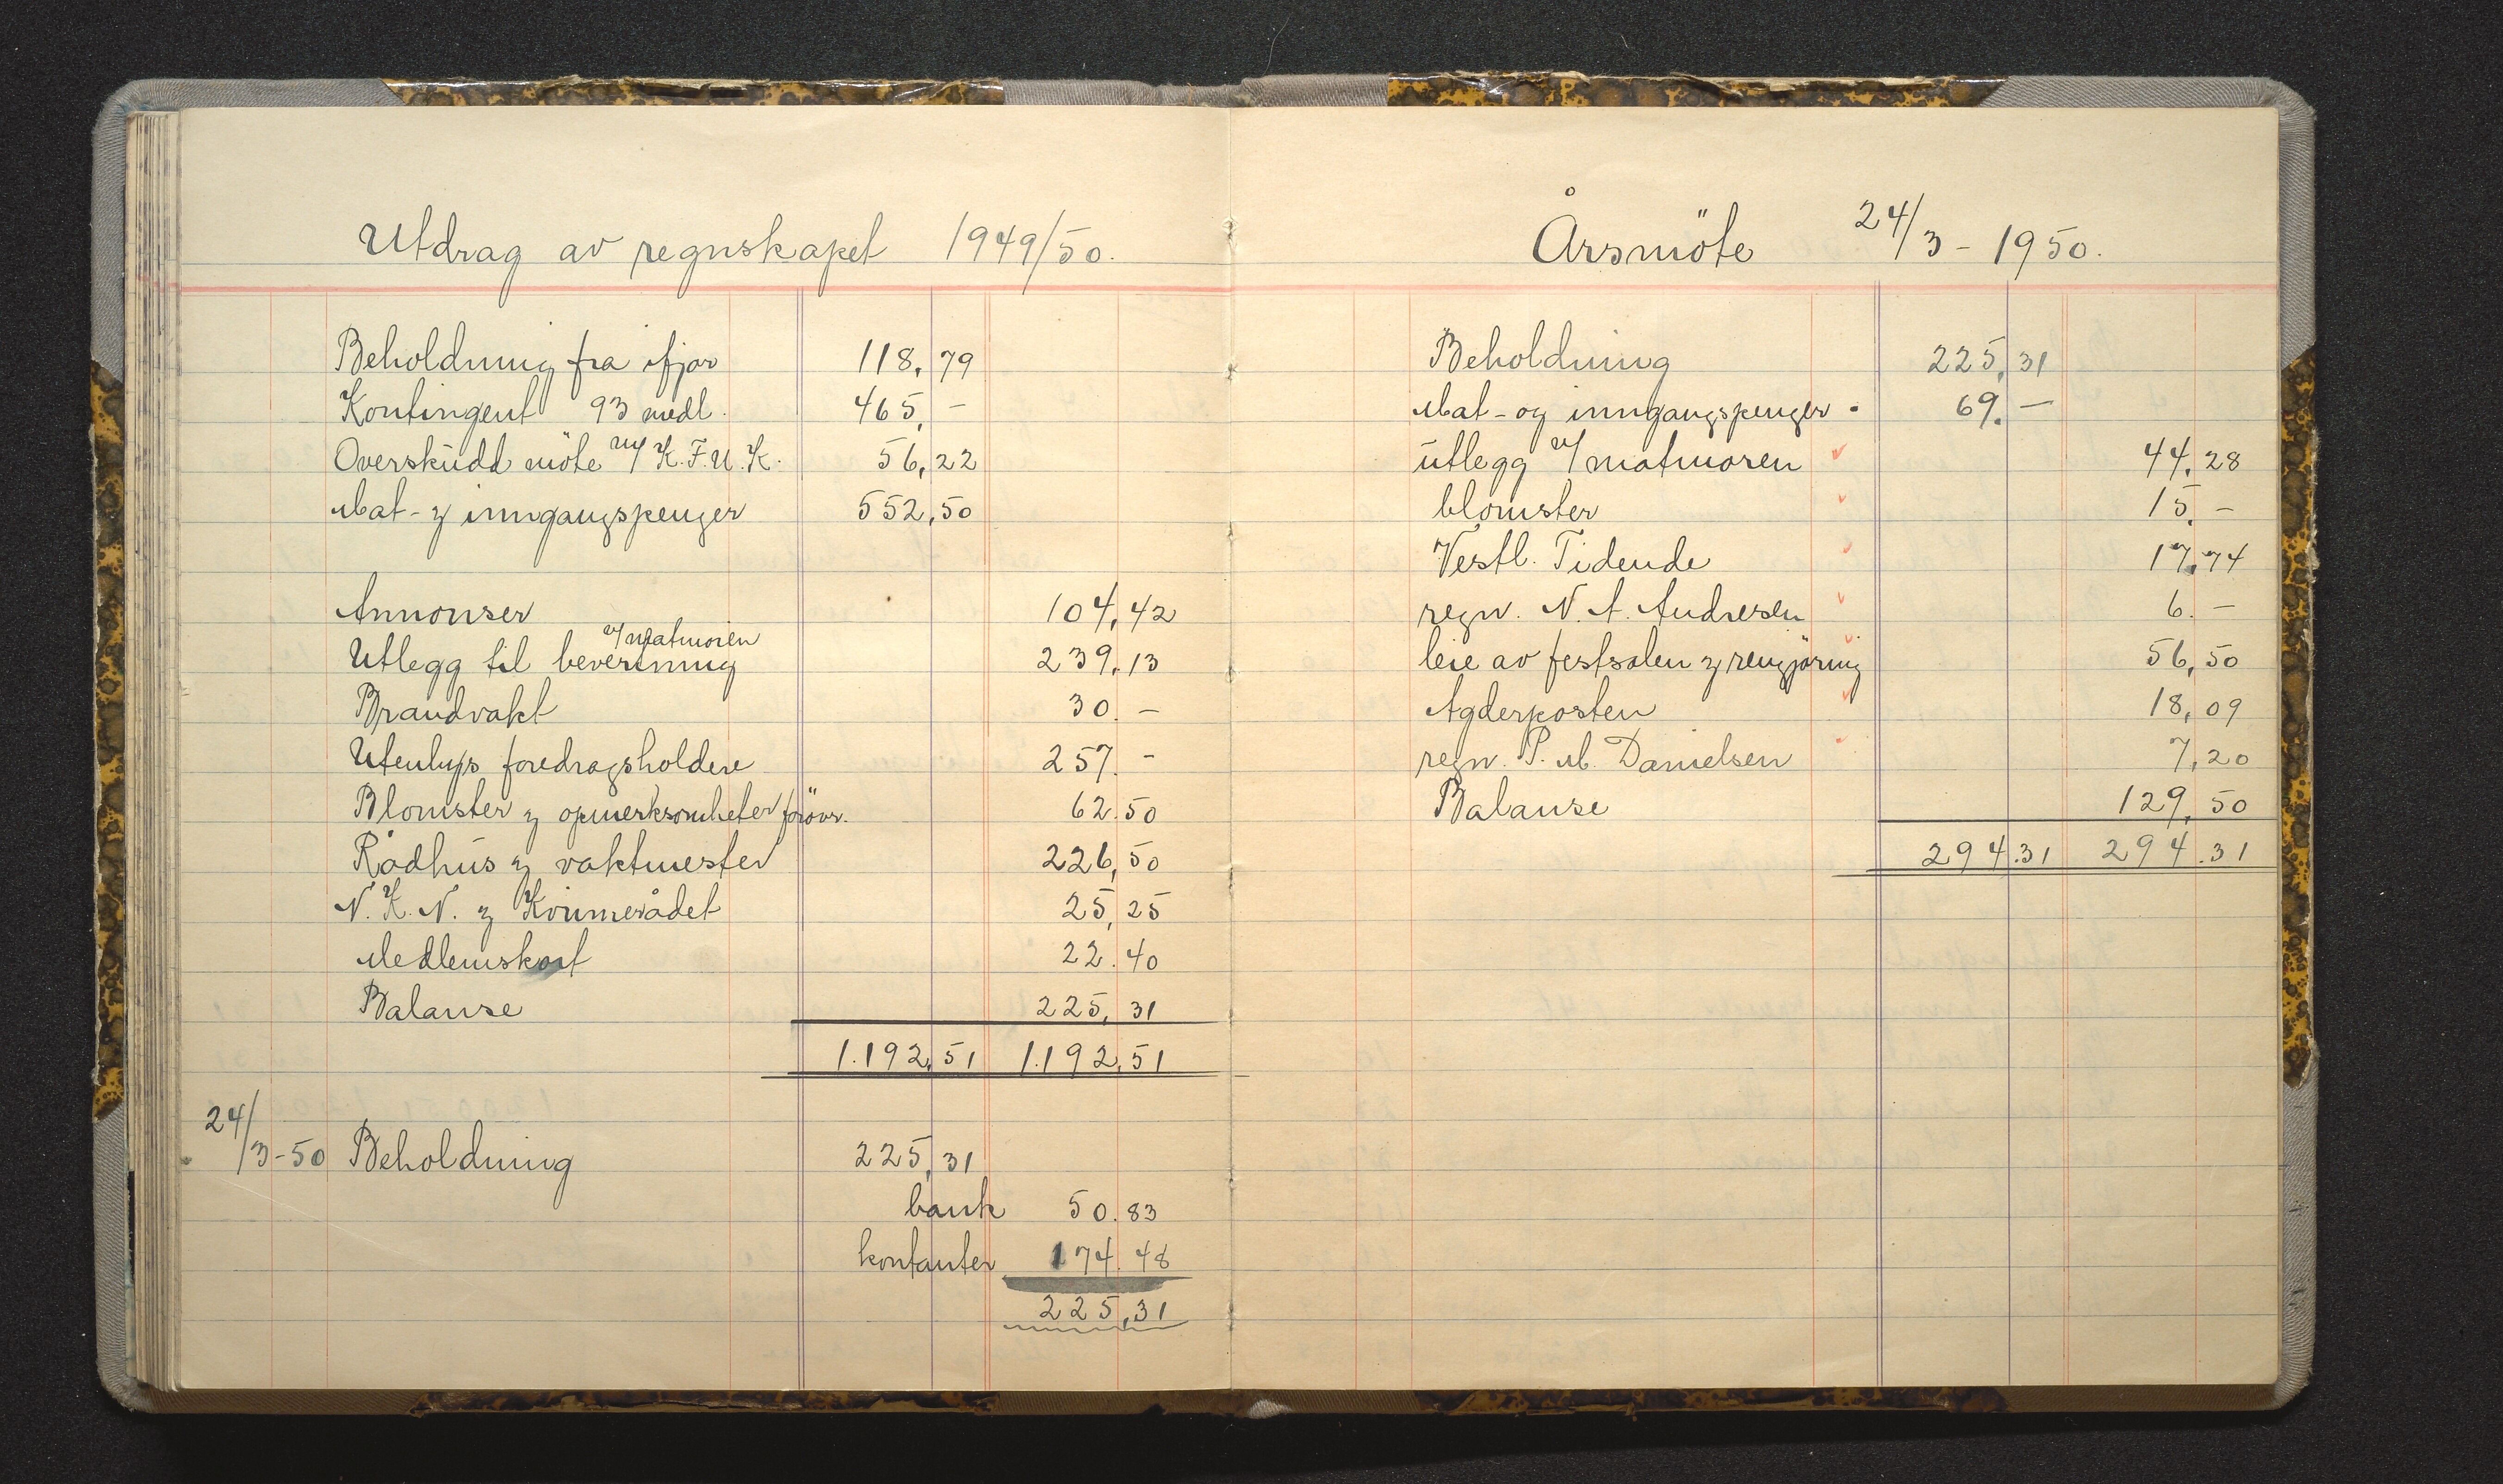 Utdrag av regnskapet 1949/50.
Beholdning fra ifjor 118,79
Kontingent 93 medl. 465,-
Overskudd möte m/ K.F.U.K. 56,22
Mat- & inngangspenger 552,50
Annonser 104,42
Utlegg til bevertning v/matmoren 239.13
Brandvakt 30.-
Utenbys foredragsholdere 257.-
Blomster & opmerksomheter forövr. 62.50
Rådhus & vaktmester 226,50
N.K.N. & Kvinnerådet 25,25
Medlemskort 22.40
Balanse 225,31
1.192,51 1.192,51
24/3-50 Beholdning 225,31
bank 50.83
kontanter 174.48
225,31
Årsmöte 24/3-1950.
Beholdning 225,31
Mat- og inngangspenger 69.-
utlegg v/ matmoren 44,28
blomster 15.-
Vestl. Tidende 17,74
regn. N. A. Andresen 6.-
leie av festsalen & rengjöring 56,50
Agderposten 18,09
regn. P. M. Danielsen 7,20
Balanse 129,50
294.31 294.31